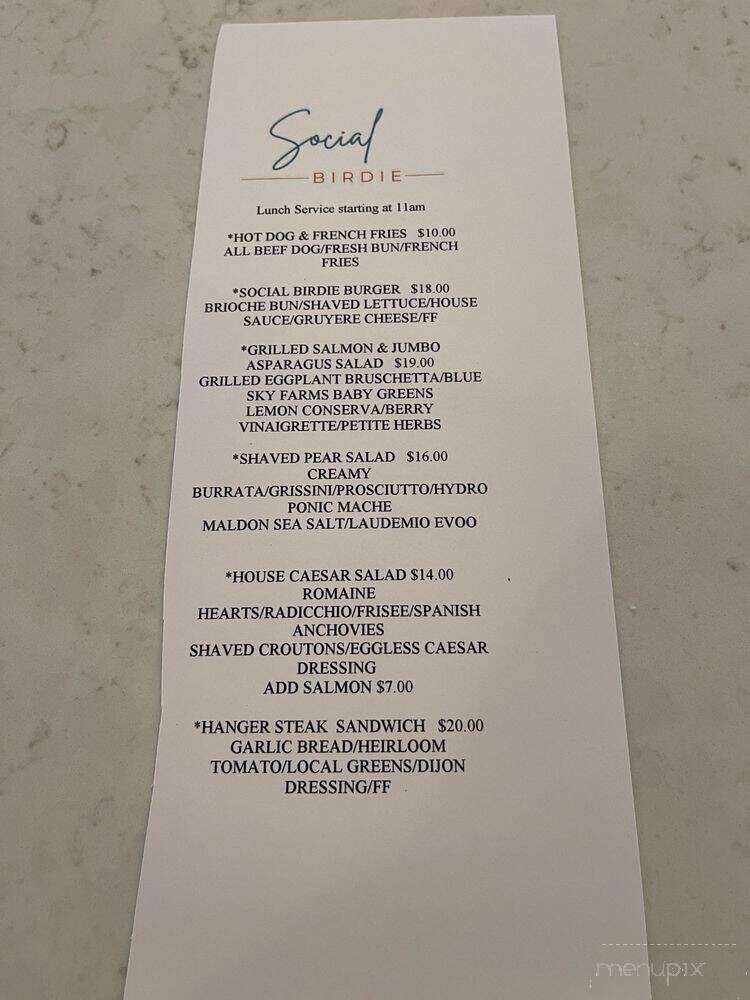 Social
BIRDIE
Lunch Service starting at 11am
*HOT DOG & FRENCH FRIES $10.00
ALL BEEF DOG/FRESH BUN/FRENCH
FRIES
*SOCIAL BIRDIE BURGER $18.00
BRIOCHE BUN/SHAVED LETTUCE/HOUSE
SAUCE/GRUYERE CHEESE/FF
*GRILLED SALMON & JUMBO
ASPARAGUS SALAD $19.00
GRILLED EGGPLANT BRUSCHETTA/BLUE
SKY FARMS BABY GREENS
LEMON CONSERVA/BERRY
VINAIGRETTE/PETITE HERBS
*SHAVED PEAR SALAD $16.00
CREAMY
BURRATA/GRISSINI/PROSCIUTTO/HYDRO
PONIC MACHE
MALDON SEA SALT/LAUDEMIO EVOO
*HOUSE CAESAR SALAD $14.00
ROMAINE
HEARTS/RADICCHIO/FRISEE/SPANISH
ANCHOVIES
SHAVED CROUTONS/EGGLESS CAESAR
DRESSING
ADD SALMON $7.00
*HANGER STEAK SANDWICH $20.00
GARLIC BREAD/HEIRLOOM
TOMATO/LOCAL GREENS/DIJON
DRESSING/FF
menupix